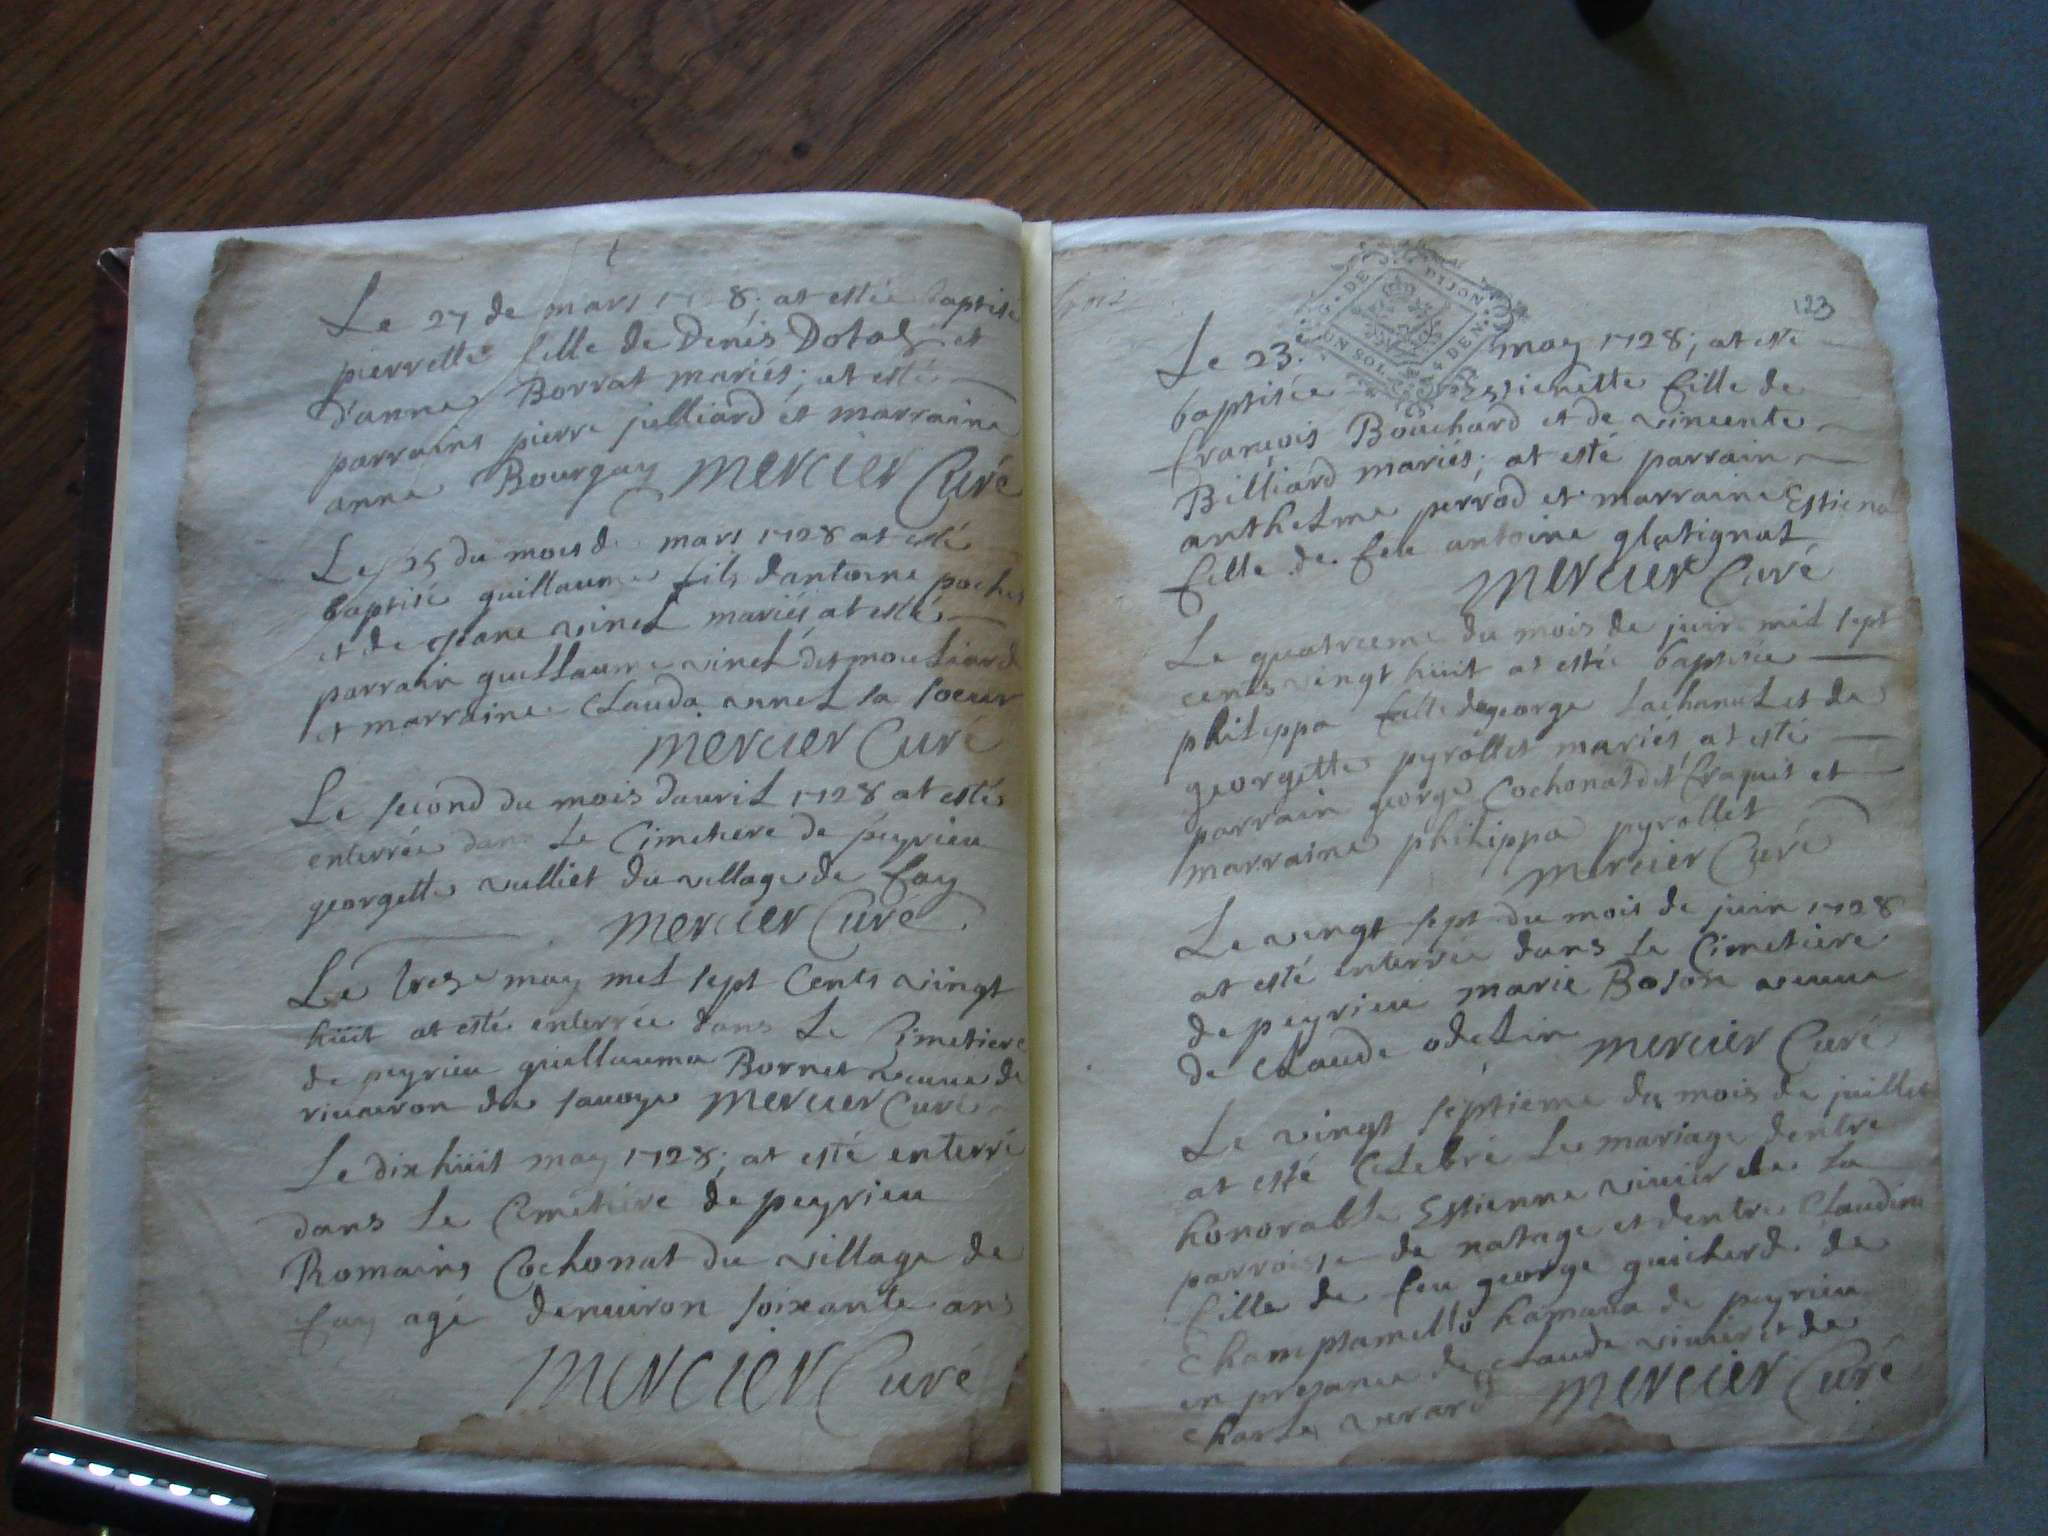 Le 27 de mars 1728; at estée baptisé
pierrette fille de Denis Dotal et
d'anne Borrat mariés; at esté
parrains pierre julliard et marraine
anne Bourgay Mercier Curé
Le 25 du mois de mars 1728 at esté
baptisé guillaume fils dantoine pochet
et de jeane vinet mariés at esté
parrain guillaume vinet dit mouliard
et marraine Clauda vinet sa soeur
Mercier Curé
Le second du mois dauril 1728 at estée
enterrée dans le Cimetiere de peyrieu
georgette vulliet du village de fay
Mercier Curé
Le trese may mil sept Cents vingt
huit at estée enterrée dans Le Cimetiere
de peyrieu guillauma Bornet veuue de
de sauoye Mercier Curé
Le dix huit may 1728; at esté enterré
dans Le Cimetiere de peyrieu
Romains Cochonat du village de
fay agé denuiron soixante ans
Mercier Curé
G. DE DIJON
UN SOL DEN
123
Le 23.e may 1728; at esté
baptisée Estienette fille de
françois Bouchard et de vincente
Billiard mariés; at esté parrain
anthelme perrod et marraine Estiena
fille de feu antoine glatignat
Mercier Curé
Le quatrieme du mois de juin mil sept
cents vingt huit at estée baptisée
philippa fille de george Lachanal et de
georgette pyrollet mariés at esté
parrain george Cochonat dit fraquis et
marraine philippa pyrollet
Mercier Curé
Le vingt sept du mois de juin 1728
at esté enterrée dans Le Cimetiere
de peyrieu marie Boson veuue
de Claude odelin Mercier Curé
Le vingt septieme du mois de juillet
at esté Celebré Le mariage dentre
honorable Estienne viuier de La
parroisse de natage et dentre Claudine
fille de feu george guicherd de
Champtamello hamaux de peyrieu
en presance de Claude viuier et de
Charle verard Mercier Curé